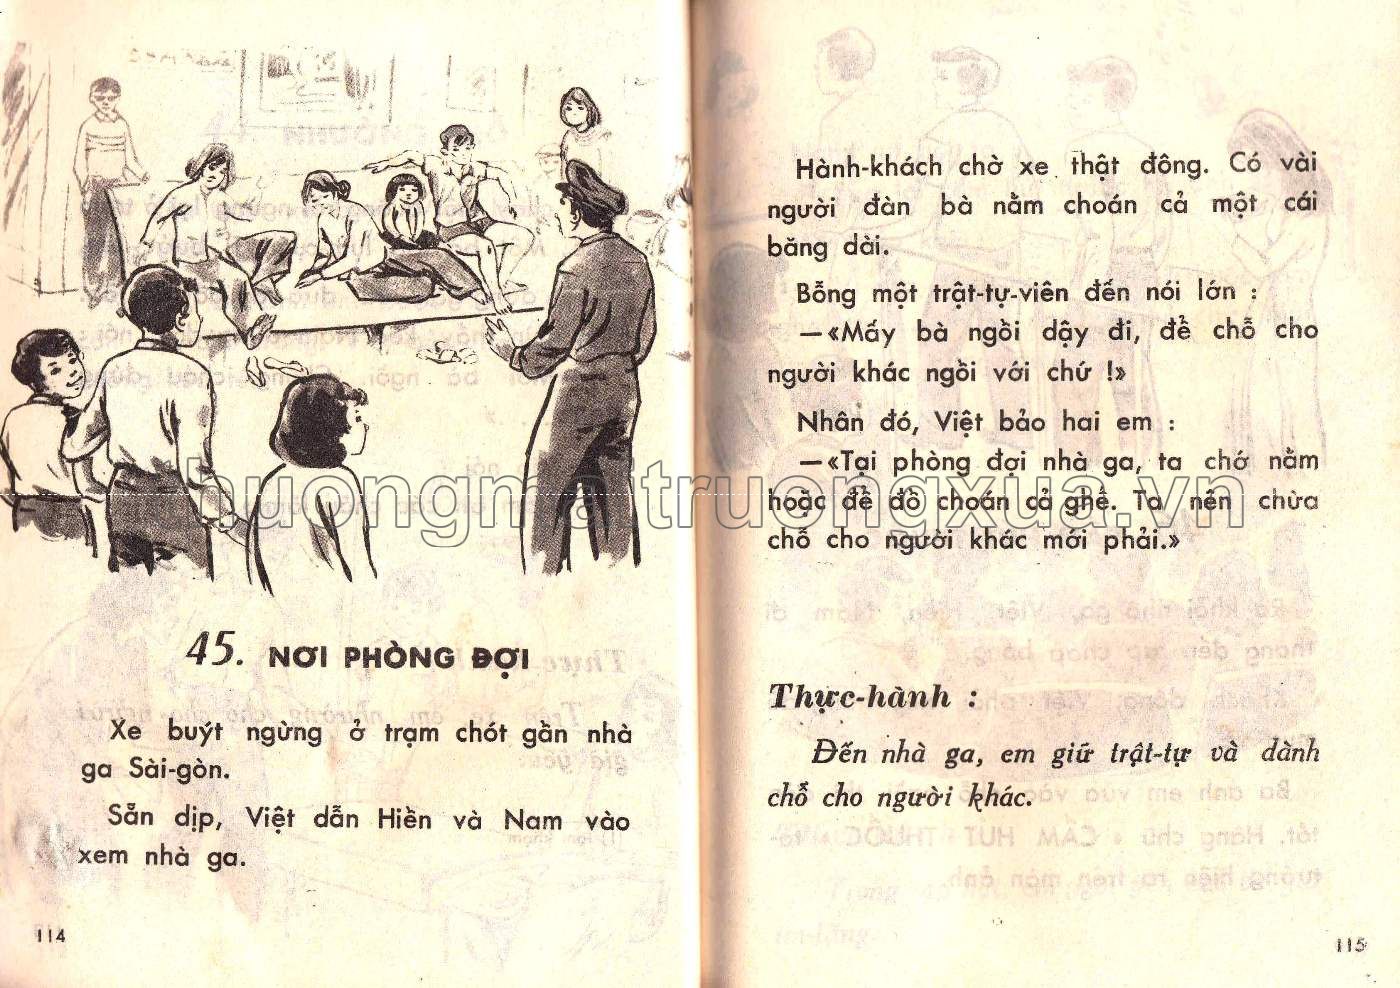 45. NƠI PHÒNG ĐỢI
Xe buýt ngừng ở trạm chót gần nhà
ga Sài-gòn.
Sẵn dịp, Việt dẫn Hiền và Nam vào
xem nhà ga.
114
Hành-khách chờ xe thật đông. Có vài
người đàn bà nằm choán cả một cái
băng dài.
Bỗng một trật-tự-viên đến nói lớn :
—«Mấy bà ngồi dậy đi, để chỗ cho
người khác ngồi với chứ !»
Nhân đó, Việt bảo hai em :
—«Tại phòng đợi nhà ga, ta chớ nằm
hoặc để đồ choán cả ghế. Ta nên chừa
chỗ cho người khác mới phải.»
thuongmaitruongxua.vn
Thực-hành :
Đến nhà ga, em giữ trật-tự và dành
chỗ cho người khác.
115